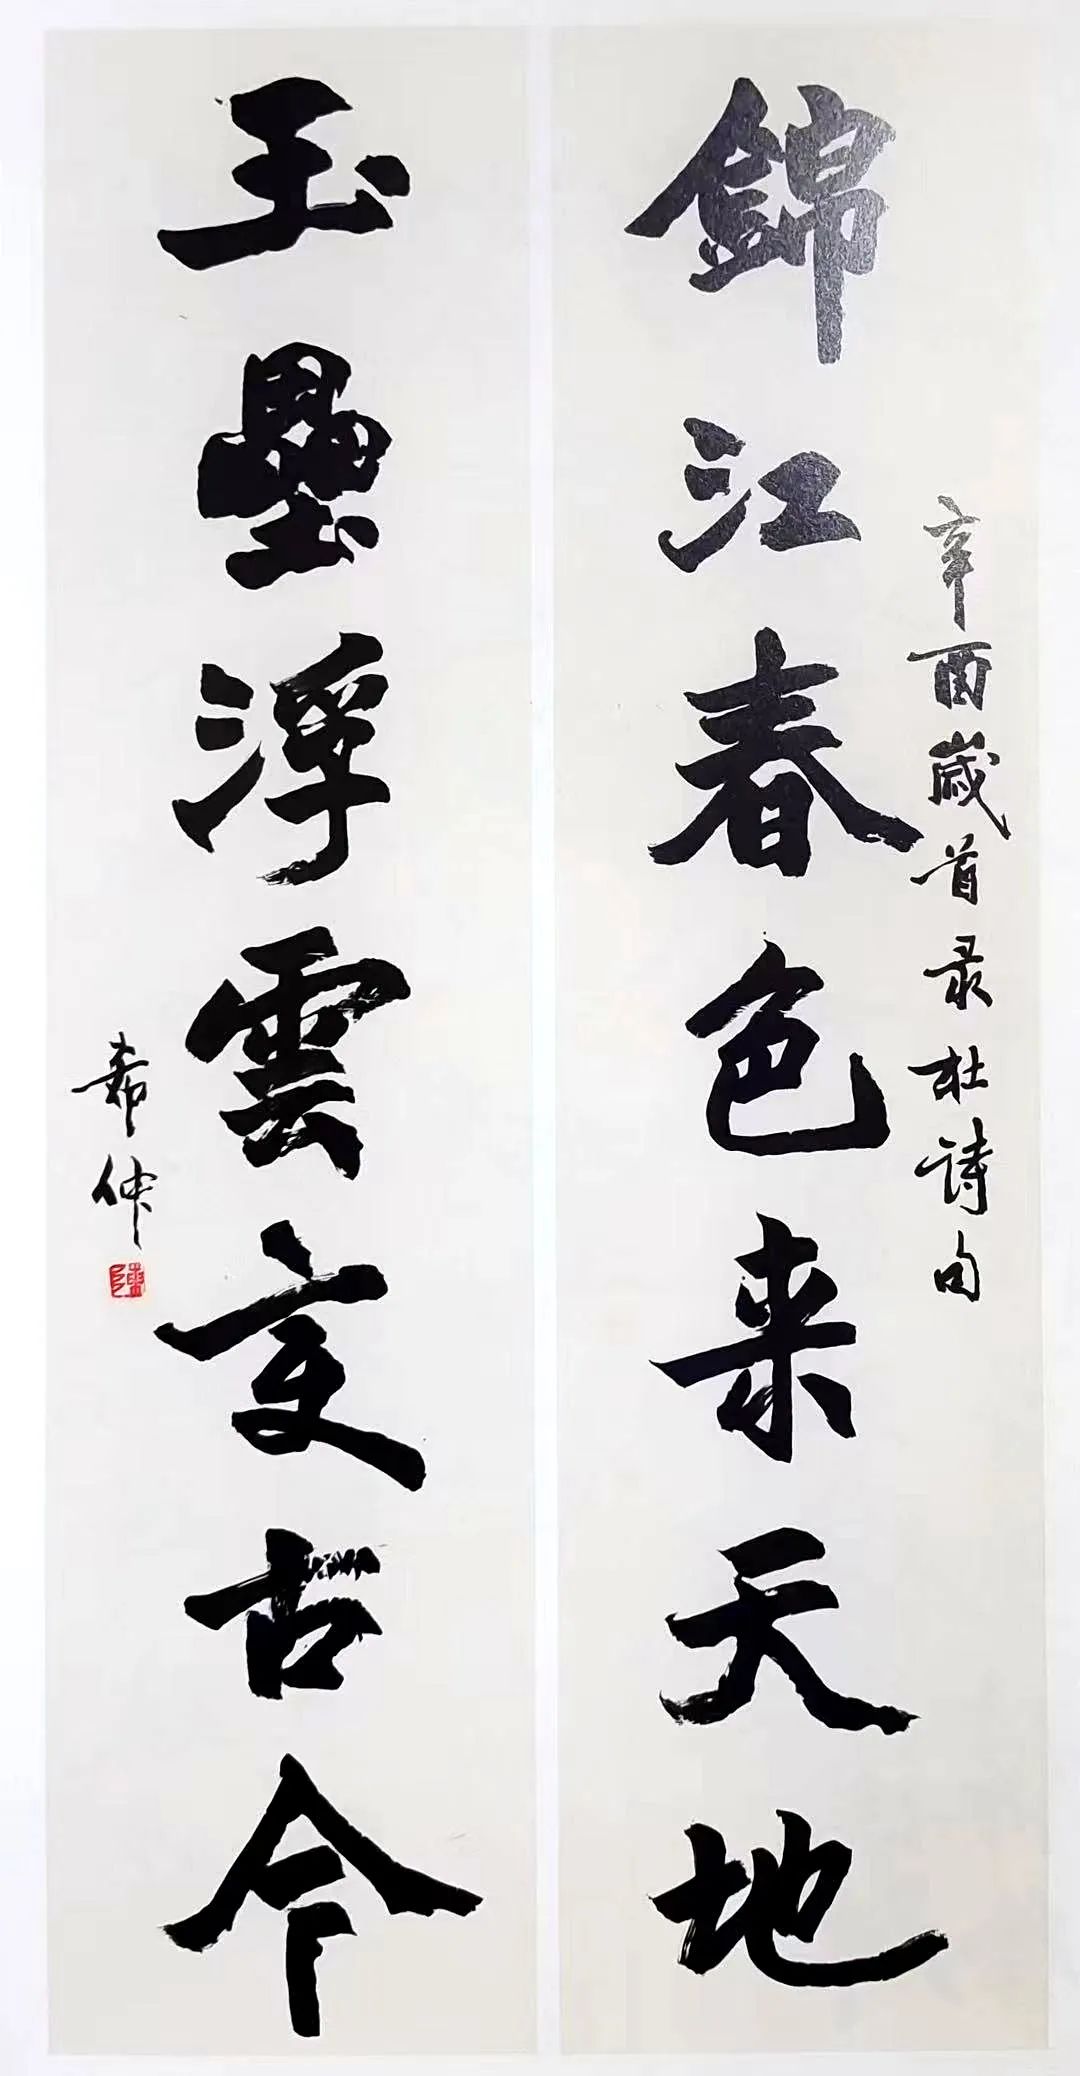 辛酉歲首录杜诗句
錦江春色来天地
玉壘浮雲变古今
希仲
陳